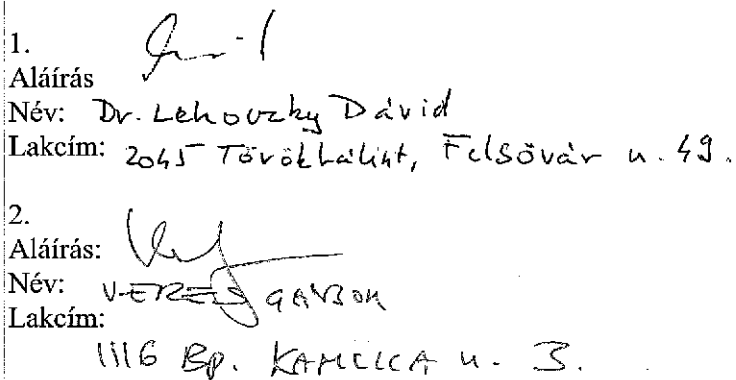 1.
Aláírás
Név: Dr. Lehovzky Dávid
Lakcím: 2045 Törökbálint, Felsővár u. 49.
2.
Aláírás:
Név: VERES GÁBOR
Lakcím:
1116 Bp. u. 3.